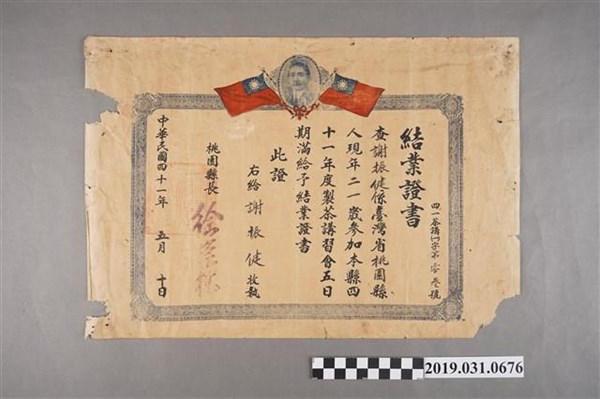 結業證書
四一茶講㈠字第零叁號
查謝振健係臺灣省桃園縣
人現年二一歲參加本縣四
十一年度製茶講習會五日
期滿給予結業證書
此證
右給 謝振健 收執
桃園縣長 徐崇德
中華民國四十一年 五月 十日
2019.031.0676